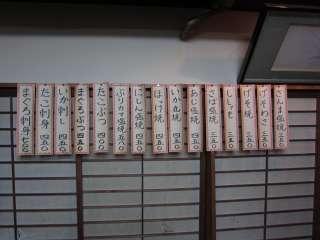 さんま塩焼 三五〇
げそわさ 三五〇
げそ焼 三五〇
ししゃも 三五〇
さば塩焼 三五〇
あじ塩焼 四五〇
いか丸焼 四五〇
ほっけ焼 四五〇
にしん塩焼 四五〇
ぶりカマ塩焼 五八〇
たこぶつ 四〇〇
まぐろぶつ 四〇〇
いか刺し 四五〇
たこ刺身 四五〇
まぐろ刺身 七五〇